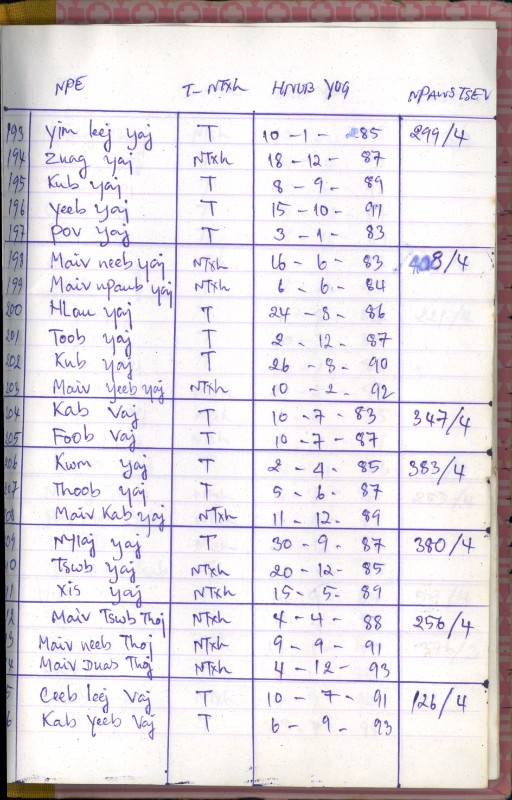 NPE T-NTxh HNUB YUG NPAWSTSEV
193 Yim leej yaj T 10-1-85 299/4
194 Zuag yaj NTxh 18-12-87
195 Kub yaj T 8-9-89
196 Yeeb yaj T 15-10-91
197 Pov yaj T 3-1-83
198 Maiv neeb yaj NTxh 16-6-83 408/4
199 Maiv npaub yaj NTxh 6-6-84
200 HLau yaj T 24-8-86
201 Toob yaj T 2-12-87
202 Kub yaj T 26-8-90
203 Maiv yeeb yaj NTxh 10-2-92
204 Kab Vaj T 10-7-83 347/4
205 Foob Vaj T 10-7-87
206 Kwm yaj T 2-4-85 383/4
207 Thoob yaj T 5-6-87
208 Maiv Kab yaj NTxh 11-12-89
09 Nyiaj yaj T 30-9-87 380/4
10 Tswb yaj NTxh 20-12-85
11 Xis yaj NTxh 15-5-89
12 Maiv Tswb Thoj NTxh 4-4-88 256/4
3 Maiv neeb Thoj NTxh 9-9-91
4 Maiv Duas Thoj NTxh 4-12-93
5 Ceeb leej Vaj T 10-7-91 126/4
6 Kab Yeeb Vaj T 6-9-93